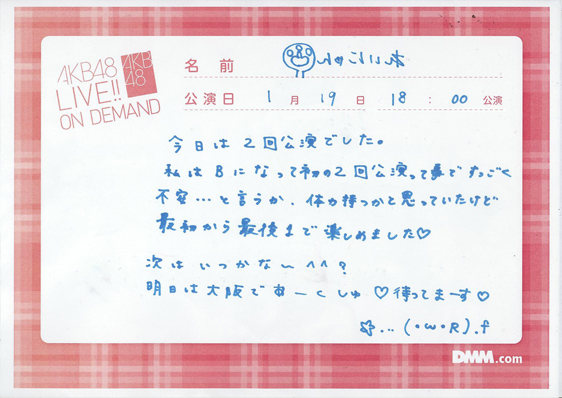 AKB48
LIVE!!
ON DEMAND
AKB
48
名前
公演日 1月19日 18:00公演
今日は2回公演でした。
私はBになって初の2回公演って事ですっごく
不安…と言うか、体力持つかと思っていたけど
最初から最後まで楽しめました♡
次はいつかな〜^^?
明日は大阪であーくしゅ♡待ってまーす♡
☆…(・ω・R).f
DMM.com